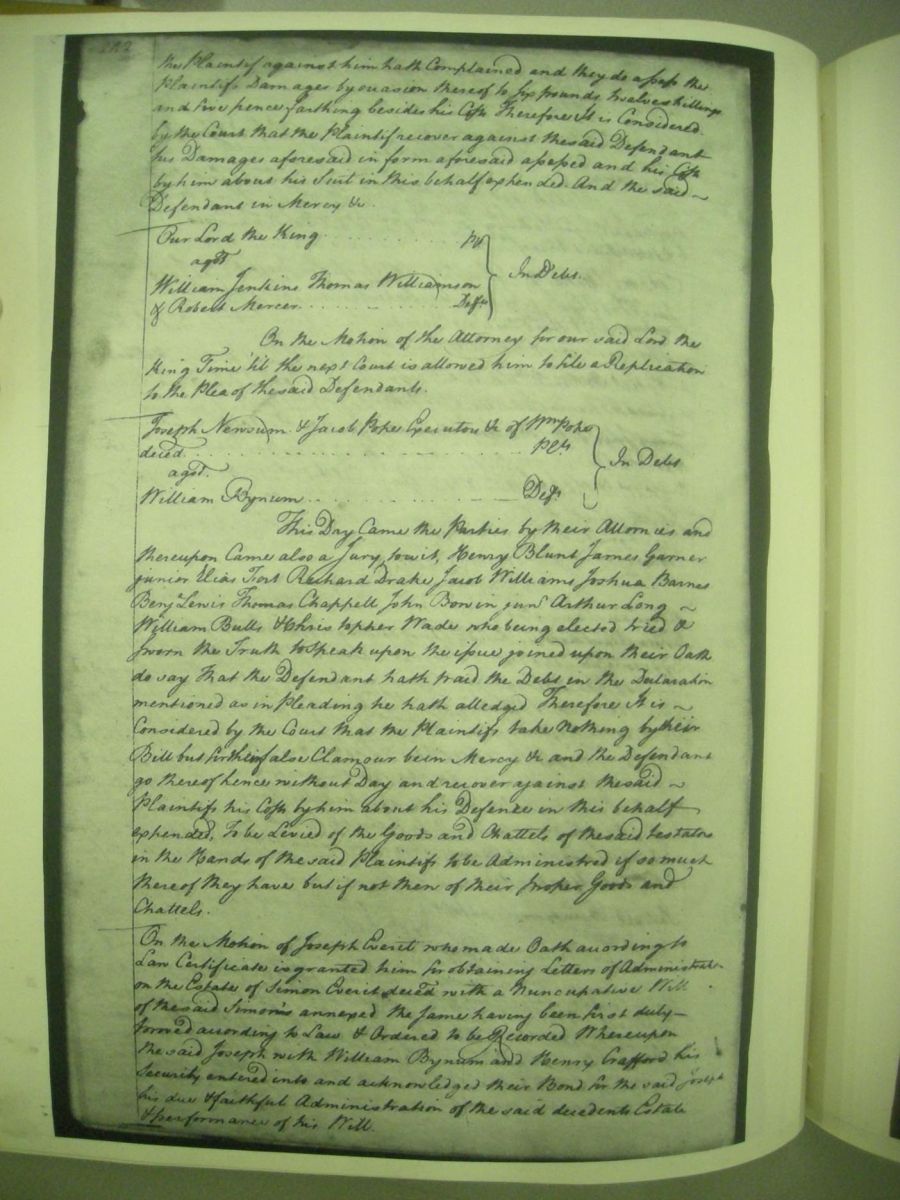 the Plaintif against him hath Complained and they do assess the
Plaintifs Damages by occasion thereof to six pounds Twelve shillings
and five pence farthing besides his Costs Therefore It is Considered
by the Court that the Plaintif recover against the said Defendant
his Damages aforesaid in form aforesaid assessed and his Costs
by him about his Suit in this behalf expended. And the said ~
Defendant in Mercy &c.
Our Lord the King . . . . . . . . . . . . plt
agst
William Jenkins Thomas Williamson
& Robert Mercer . . . . . . . . . . . Defts
In Debt.
On the Motion of the Attorney for our said Lord the
King Time 'til the next Court is allowed him to file a Replication
to the Plea of the said Defendants.
Joseph Newsum & Jacob Poke Executors &c of Wm Poke
deced. . . . . . . . . . . . . . . . . . plts
agst.
William Bynum . . . . . . . . . . . Deft.
In Debt
This Day Came the Parties by their Attornies and
thereupon Came also a Jury, towit, Henry Blunt James Garner
junior Elias Fort Richard Drake Jacob Williams Joshua Barnes
Benja Lewis Thomas Chappell John Bowin junr Arthur Long ~
William Bulls & Christopher Wade who being elected tried &
sworn the Truth to speak upon the issue joined upon their Oath
do say That the Defendant hath paid the Debt in the Declaration
mentioned as in Pleading he hath alledged Therefore It is ~
Considered by the Court that the Plaintifs take nothing by their
Bill but for their false Clamour be in Mercy &c and the Defendant
go thereof hence without Day and recover against the said ~
Plaintifs his Costs by him about his Defence in this behalf
expended, To be Levied of the Goods and Chattels of the said testators
in the Hands of the said Plaintifs to be Administred if so much
thereof they have but if not then of their proper Goods and
Chattels.
On the Motion of Joseph Everit who made Oath according to
Law Certificate is granted him for obtaining Letters of Administrat~
on the Estate of Simon Everit deced with a Nuncupative Will
of the said Simon's annexed the same having been first duly
proved according to Law & Ordered to be Recorded Whereupon
the said Joseph with William Bynum and Henry Crafford his
Security entered into and acknowledged their Bond for the said Joseph
his due & faithful Administration of the said decedents Estate
& performance of his Will.